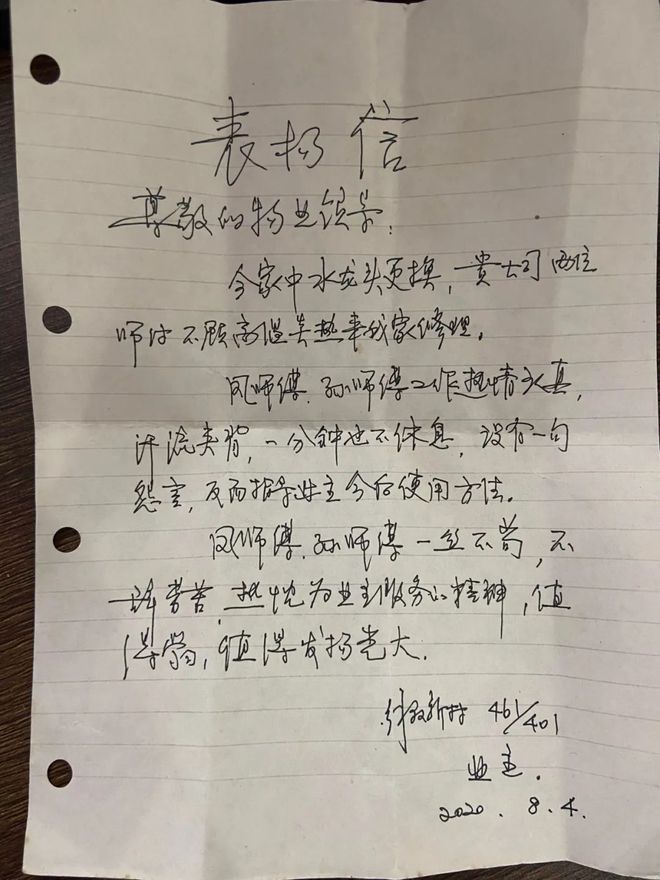 表扬信
尊敬的物业领导:
今家中水龙头更换,贵公司两位
师傅不顾高温炎热来我家修理。
凤师傅、孙师傅工作热情认真,
汗流夹背,一分钟也不休息,没有一句
怨言,反而指导业主今后使用方法。
凤师傅、孙师傅一丝不苟,不
辞劳苦,热忱为业主服务的精神,值
得学习,值得发扬光大。
新村 461/401
业主.
2020.8.4.